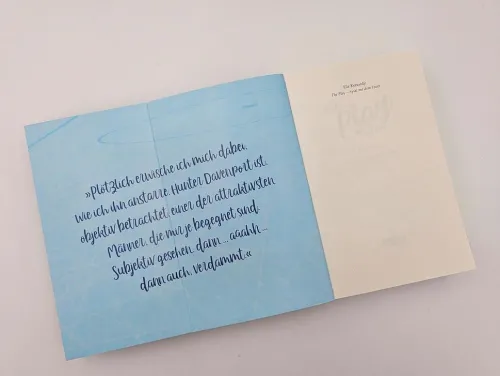 »Plötzlich erwische ich mich dabei,
wie ich ihn anstarre. Hunter Davenport ist,
objektiv betrachtet, einer der attraktivsten
Männer, die mir je begegnet sind.
Subjektiv gesehen, dann ... aaahh ...
dann auch, verdammt.«
play